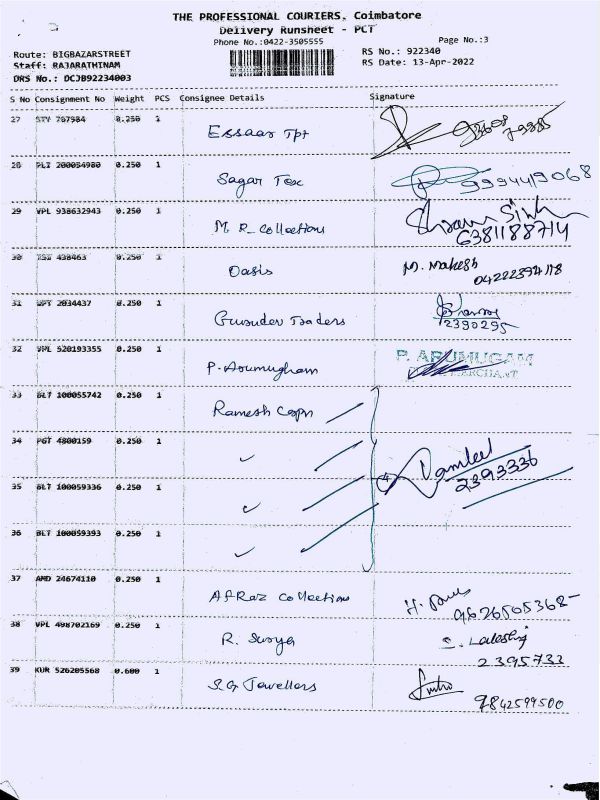 THE PROFESSIONAL COURIERS, Coimbatore
Delivery Runsheet - PCT
Phone No.:0422-3505555
Page No.:3
Route: BIGBAZARSTREET
RS No.: 922340
Staff: RAJARATHINAM
RS Date: 13-Apr-2022
DRS No.: DCJB92234003
S No Consignment No Weight PCS Consignee Details Signature
27 STV 767984 0.250 1 Essaar Tpt
28 PLI 200054980 0.250 1 Sagar Tex 9994419068
29 VPL 938632943 0.250 1 M. R_ Collections 6381188714
30 438463 0.250 1 Oasis M. Mahesh
31 2034437 0.250 1 Gurudev Traders 2390295
32 VPL 520193355 0.250 1 P. Arumugham P. ARUMUGAM MERCHANT
33 BLT 100055742 0.250 1 Ramesh Copn
34 PGT 4800159 0.250 1
35 BLT 100059336 0.250 1 4 2393336
36 BLT 100059393 0.250 1
37 AMD 24674110 0.250 1 AfRaz Collections 9626505368
38 VPL 498702169 0.250 1 R. Surya 2395733
39 KUR 526205568 0.600 1 S.G Jewellers 9842599500